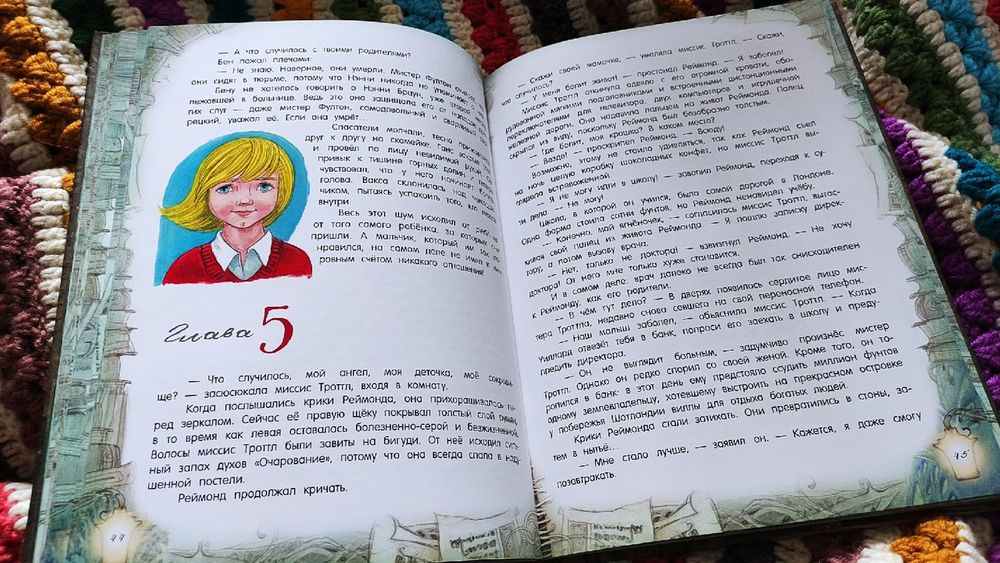 — А что случилось с твоими родителями?
Бен пожал плечами:
— Не знаю. Наверное, они умерли. Мистер Фултон
они сидят в тюрьме, потому что Нэнни никогда не
Бену не хотелось говорить о Нэнни Браун, уже
лежавшей в больнице. Ведь это она защищала его от
гих слуг — даже мистер Фултон, самодовольный и
рецкий, уважал её. Если она умрёт...
Спасатели молчали, тесно
друг к другу на скамейке. Ганс
и провёл по лицу невидимой рукой
привык к тишине горных долин,
чувствовал, что у него начинает
голова. Вакса склонилась над
чиком, пытаясь успокоить того, кто лежал
внутри.
Весь этот шум исходил от ребёнка
от того самого ребёнка, за которым
пришли. А мальчик, который им так
нравился, на самом деле не имел к ним
ровным счётом никакого отношения!
Глава 5
— Что случилось, мой ангел, моя деточка, моё сокрови-
ще? — засюсюкала миссис Троттл, входя в комнату.
Когда послышались крики Реймонда, она прихорашивалась пе-
ред зеркалом. Сейчас её правую щёку покрывал толстый слой румян,
в то время как левая оставалась болезненно-серой и безжизненной.
Волосы миссис Троттл были завиты на бигуди. От неё исходил силь-
ный запах духов «Очарование», потому что она всегда спала в наду-
шенной постели.
Реймонд продолжал кричать.
44
— Скажи своей мамочке, — умоляла миссис Троттл. — Скажи,
что случилось, заинька!
— У меня болит живот! — простонал Реймонд. — Я заболел!
Миссис Троттл откинула одеяло с его огромной кровати, обо-
рудованной семью подголовниками и встроенными дистанционными
переключателями для телевизора, двух компьютеров и игрушечной
железной дороги. Она надавила пальцем на живот Реймонда. Палец
скрылся из виду, поскольку Реймонд был безобразно толстым.
— Где болит, моя крошка? В каком месте?
— Везде! — проскрипел Реймонд. — Всюду!
Возможно, этому не стоило удивляться, так как Реймонд съел
на ночь целую коробку шоколадных конфет, но миссис Троттл вы-
глядела встревоженной.
— Я не могу идти в школу! — завопил Реймонд, переходя к су-
ти дела. — Не могу!
Школа, в которой он учился, была самой дорогой в Лондоне.
Одна форма стоила сотни фунтов, но Реймонд ненавидел учёбу.
— Конечно, мой ягнёночек, — согласилась миссис Троттл, вытас-
кивая свой палец из живота Реймонда. — Я пошлю записку дирек-
тору, а потом вызову врача.
— Нет, только не доктора! — взвизгнул Реймонд. — Не хочу
доктора! От него мне только хуже становится.
И в самом деле: врач далеко не всегда был так снисходителен
к Реймонду, как его родители.
— В чём тут дело? — В дверях появилось сердитое лицо мис-
тера Троттла, недавно снова севшего на свой переносной телефон.
— Наш малыш заболел, — объяснила миссис Троттл. — Когда
Уиллард отвезёт тебя в банк, попроси его заехать в школу и преду-
предить директора.
— Он не выглядит больным, — задумчиво произнёс мистер
Троттл. Однако он редко спорил со своей женой. Кроме того, он то-
ропился в банк: в этот день ему предстояло ссудить миллион фунтов
одному землевладельцу, хотевшему выстроить на прекрасном островке
у побережья Шотландии виллы для отдыха богатых людей.
Крики Реймонда стали затихать. Они превратились в стоны, за-
тем в нытьё...
— Мне стало лучше, — заявил он. — Кажется, я даже смогу
позавтракать.
45